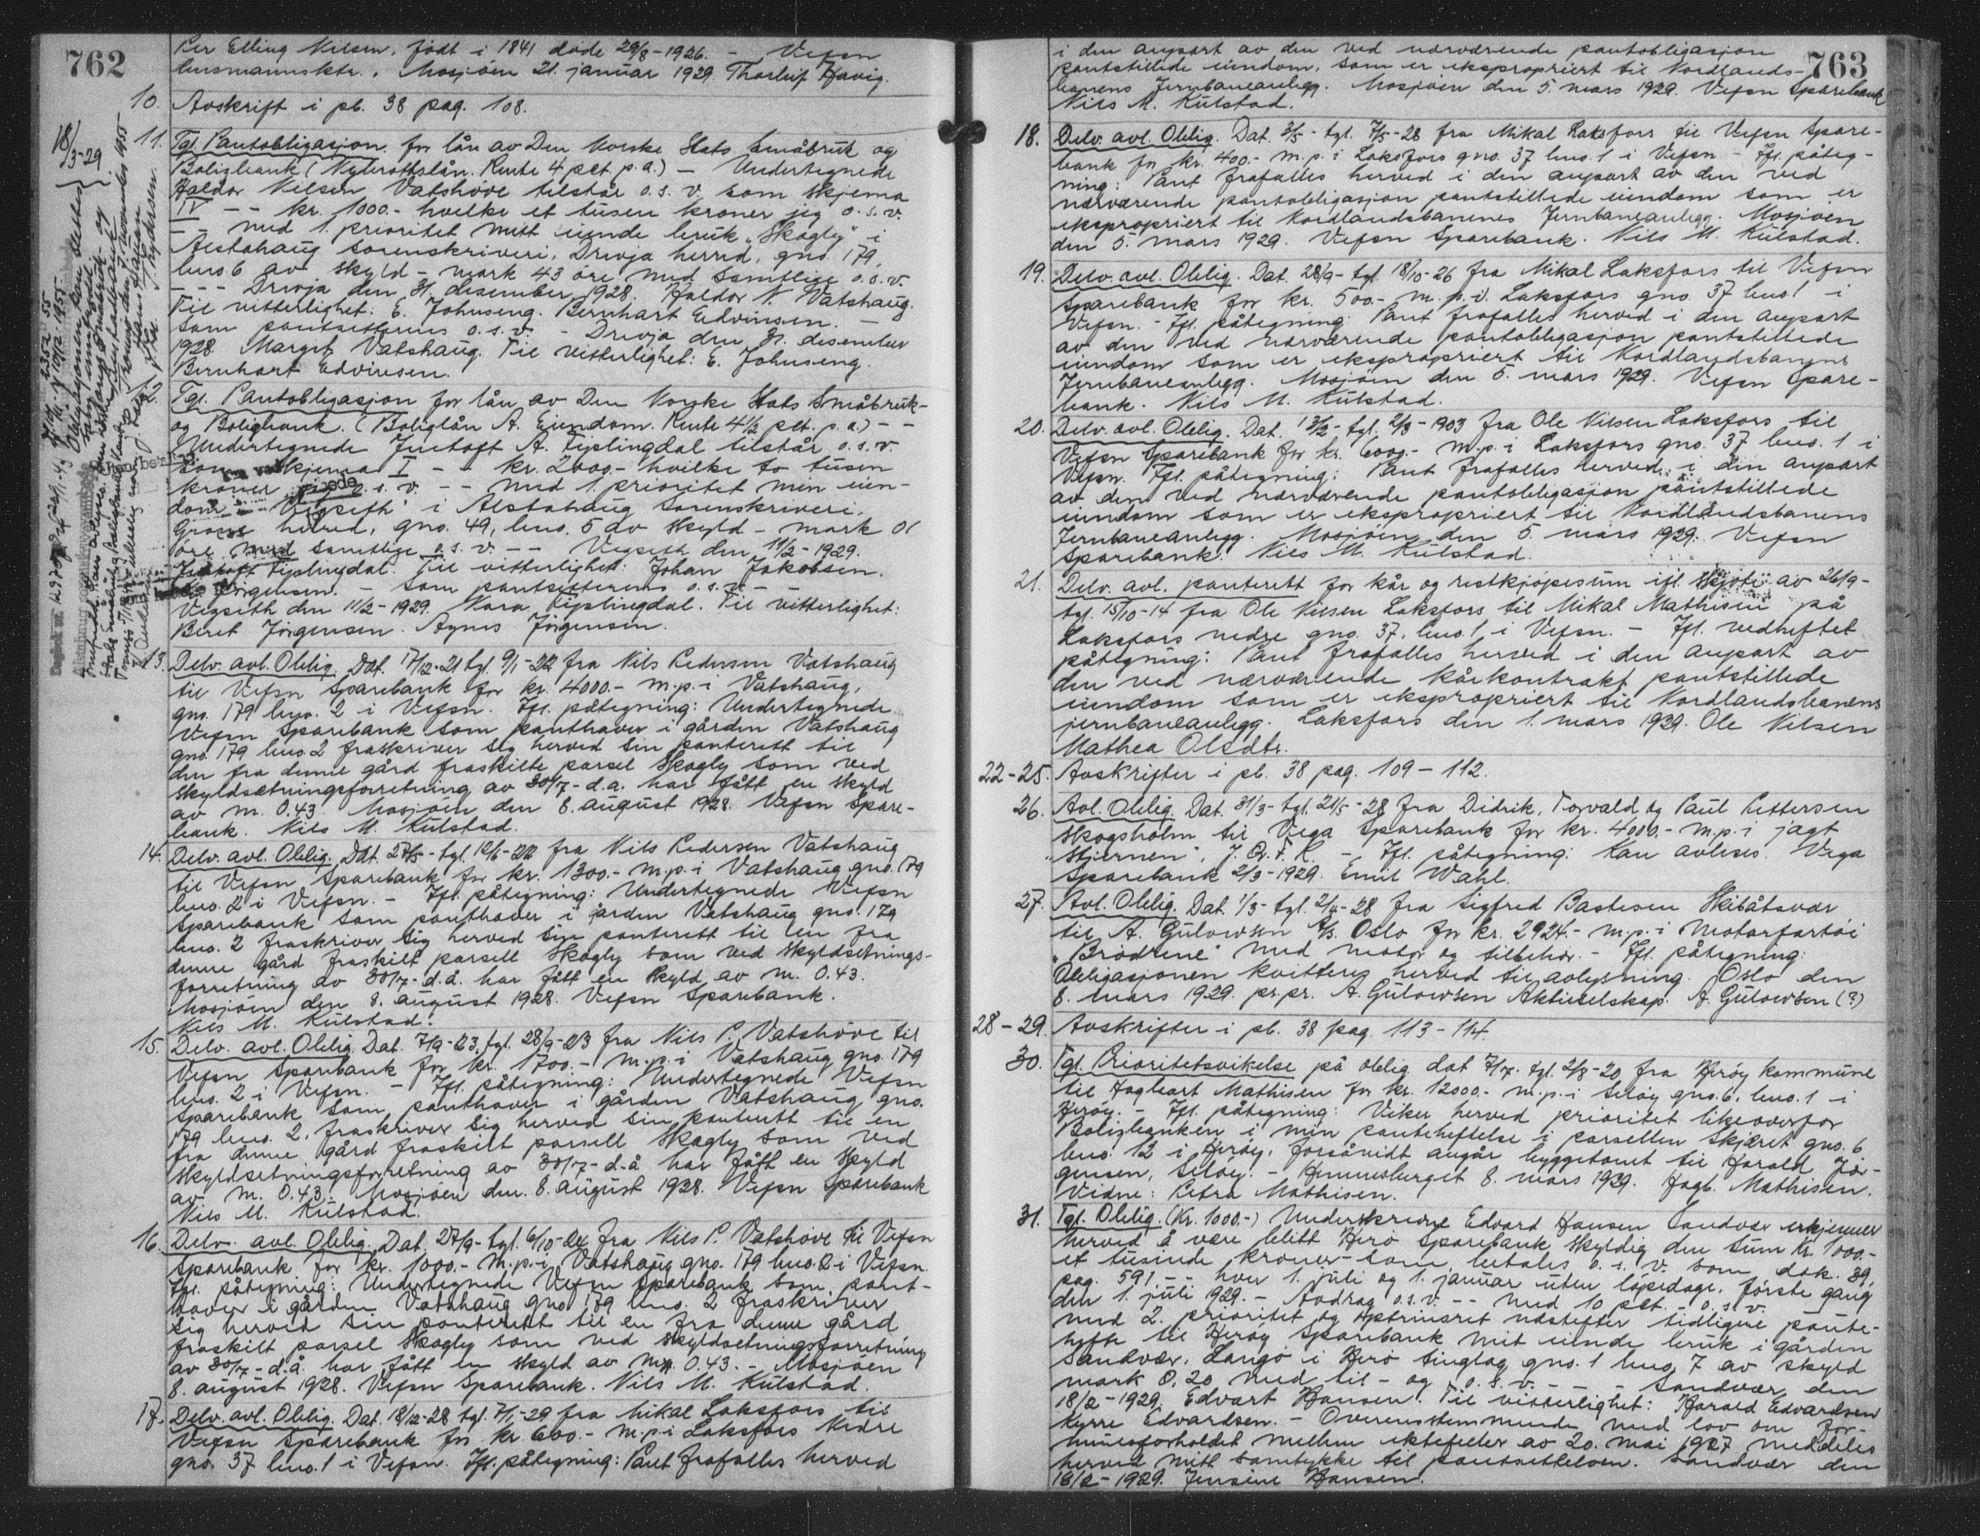 762
Per Elling Nilsen, født i 1841 døde 29/8-1926. - Vefsn
lensmannsktr., Mosjøen 21. januar 1929. Thorleif Havig.
10. Avskrift i pb. 38 pag. 108.
18/3-29
11. Tgl. Pantobligasjon for lån av Den Norske Stats Småbruk og
Boligbank (Nybrottslån. Rente 4 pct. p.a.) - Undertegnede
Haldor Nilsen Vatshöve tilstår o.s.v. som skjema
IV - - kr. 1000.- hvilke et tusen kroner jeg o.s.v.
- - med 1. prioritet mitt eiende bruk "Skogly" i
Alstahaug sorenskriveri, Drevja herred, gno. 179,
bno 6 av skyld - mark 43 öre med samtlige o.s.v.
- - - Drevja den 31. desember 1928. Haldor N. Vatshaug.
Til vitterlighet: E. Johnseng. Bernhart Edvinsen. -
Som pantsetterens o.s.v. - Drevja den 31. desember
1928. Margit Vatshaug. Til vitterlighet: E. Johnseng.
Bernhart Edvinsen.
12. Tgl. Pantobligasjon for lån av Den Norske Stats Småbruk-
og Boligbank. (Boliglån A. Eiendom. Rente 4½ pct. p.a.) - -
Undertegnede Jentoft A. Fiplingdal tilstår o.s.v.
som skjema I - - kr. 2000.- hvilke to tusen
kroner jeg o.s.v. - - med 1. prioritet min eien-
dom "Vegseth" i Alstahaug Sorenskriveri,
Grane herred, gno. 49, bno. 5 av skyld - mark 01
öre med samtlige o.s.v. - - Vegseth den 11/2-1929.
Jentoft Fiplingdal. Til vitterlighet: Johan Jakobsen.
Jörgensen. - Som pantsetterens o.s.v. -
Vegseth den 11/2-1929. Nora Fiplingdal. Til vitterlighet:
Beret Jørgensen. Agnes Jørgensen.
13. Delv. avl. Oblig. Dat. 17/12-21 tgl. 9/1-22 fra Nils Pedersen Vatshaug
til Vefsn Sparebank for kr. 4000.- m.p. i Vatshaug,
gno. 179 bno. 2 i Vefsn. Ifl. påtegning: Undertegnede
Vefsn Sparebank som panthaver i gården Vatshaug
gno. 179 bno 2 fraskriver sig herved sin panterett til
den fra denne gård fraskilte parsel Skogly som ved
skyldsætningsforretning av 30/7- d.a. har fått en skyld
av m. 0.43. Mosjøen den 8. august 1928. Vefsn Spare-
bank. Nils M. Kulstad.
14. Delv. avl. Oblig. Dat. 27/5- tgl. 12/6-22 fra Nils Pedersen Vatshaug
til Vefsn Sparebank for kr. 1300.- m.p. i Vatshaug gno. 179
bno. 2 i Vefsn. - Ifl. påtegning: Undertegnede Vefsn
Sparebank som panthaver i gården Vatshaug gno. 179
bno. 2 fraskriver sig herved sin panterett til en fra
denne gård fraskilt parsell Skogly som ved skyldsetnings-
forretning av 30/7- d.å. har fått en skyld av m. 0.43.
Mosjøen den 8. august 1928. Vefsn Sparebank.
Nils M. Kulstad.
15. Delv. avl. Oblig. Dat. 7/9-23, tgl. 28/9-23 fra Nils P. Vatshöve til
Vefsn Sparebank for kr. 1700.- m.p. i Vatshaug gno. 179
bno. 2 i Vefsn. - Ifl. påtegning: Undertegnede Vefsn
Sparebank som panthaver i gården Vatshaug gno.
179 bno. 2. fraskriver sig herved sin panterett til en
fra denne gård fraskilt parsell Skogly som ved
skyldsetningsforretning av 30/7- d.å. har fått en skyld
av m. 0.43. Mosjøen den 8. august 1928. Vefsn Sparebank
Nils M. Kulstad.
16. Delv. avl. Oblig. Dat. 27/9- tgl. 6/10-24 fra Nils P. Vatshöve til Vefsn
Sparebank for kr. 1000.- m.p. i Vatshaug gno. 179 bno. 2 i Vefsn.
Ifl. påtegning: Undertegnede Vefsn Sparebank som pant-
haver i gården Vatshaug gno 179 bno. 2 fraskriver
sig herved sin panterett til en fra denne gård
fraskilt parsel Skogly som ved skyldsetningsforretning
av 30/7- d.å. har fått en skyld av m. 0.43. - Mosjøen
8. august 1928. Vefsn Sparebank. Nils M. Kulstad.
17. Delv. avl. Oblig. Dat. 18/12-28 tgl. 7/1-29 fra Mikal Laksfors til
Vefsn Sparebank for kr. 600.- m.p. i Laksfors Nedre
gno. 37 bno. 1 i Vefsn. Ifl. påtegning: Pant frafalles herved
763
i den anpart av den ved nærværende pantobligasjon
pantstillede eiendom, som er ekspropriert til Nordlands-
banens Jernbaneanlegg. Mosjøen den 5. mars 1929. Vefsn Sparebank
Nils M. Kulstad.
18. Delv. avl. Oblig. Dat. 3/5- tgl. 7/5-28 fra Mikal Laksfors til Vefsn Spare-
bank for kr. 400.- m.p. i Laksfors gno. 37 bno. 1 i Vefsn - Ifl. påteg-
ning: Pant frafalles herved i den anpart av den ved
nærværende pantobligasjon pantstillede eiendom som er
ekspropriert til Nordlandsbanenes Jernbaneanlegg. Mosjøen
den 5. mars 1929. Vefsn Sparebank. Nils M. Kulstad.
19. Delv. avl. Oblig. Dat. 28/9- tgl. 18/10-26 fra Mikal Laksfors til Vefsn
Sparebank for kr. 500.- m.p. i Laksfors gno. 37 bno. 1 i
Vefsn. - Ifl. påtegning: Pant frafalles herved i den anpart
av den ved nærværende pantobligasjon pantstillede
eiendom som er ekspropriert til Nordlandsbanens
Jernbaneanlegg. Mosjøen den 5. mars 1929. Vefsn Spare-
bank. Nils M. Kulstad.
20. Delv. avl. Oblig. Dat. 13/2- tgl. 2/3-1903 fra Ole Nilsen Laksfors til
Vefsn Sparebank for kr. 6000.- m.p. i Laksfors gno. 37 bno. 1 i
Vefsn. Ifl. påtegning: Pant frafalles herved i den anpart
av den ved nærværende pantobligasjon pantstillede
eiendom som er ekspropriert til Nordlandsbanens
Jernbaneanlegg. Mosjøen den 5. mars 1929. Vefsn
Sparebank. Nils M. Kulstad.
21. Delv. avl. panterett for kår og restkjøpesum ifl. skjöte av 26/9-
tgl. 15/10-14 fra Ole Nilsen Laksfors til Mikal Mathisen på
Laksfors nedre gno. 37, bno. 1 i Vefsn. - Ifl. vedheftet
påtegning: Pant frafalles herved i den anpart av
den ved nærværende kårkontrakt pantstillede
eiendom som er ekspropriert til Nordlandsbanens
jernbaneanlegg. Laksfors den 1. mars 1929. Ole Nilsen
Mathea Olsdtr.
22-25. Avskrifter i pb. 38 pag. 109-112.
26. Avl. Oblig. Dat. 31/3- tgl. 21/5-28 fra Didrik, Torvald og Paul Pettersen
Skogsholm til Vega Sparebank for kr. 4000.- m.p. i jagt
"Stjernen", - Ifl. påtegning: Kan avleses. Vega
Sparebank 2/3-1929. Emil Wahl.
27. Avl. Oblig. Dat. 1/3- tgl. 2/4-28 fra Sigfred Bastesen Skibåtsvær
til A. Gulowsen A/S. Oslo for kr. 2924.- m.p. i Motorfartøi
"Brödrene" med motor og tilbehør. - Ifl. påtegning:
Obligasjonen kvitteres herved til avlysning. Oslo den
8. mars 1929. pr. pr. A. Gulowsen Aktieselskap. A. Gulowsen (?)
28-29. Avskrifter i pb. 38 pag. 113-114.
30. Tgl. Prioritetsvikelse på oblig dat 7/7- tgl. 2/8-20 fra Herøy kommune
til Hagbart Mathisen for kr. 12000.- m.p. i Seløy gno. 6, bno. 1 i
Herøy. - Ifl. påtegning: Viker herved prioritet likeoverfor
Boligbanken i min panteheftelse i parsellen Skjæret gno. 6
bno. 12 i Herøy, forsåvidt angår byggetomt til Harald Jör-
gensen, Seløy. - Hennesberget 8. mars 1929. Hagb. Mathisen.
Vidne: Petra Mathisen.
31. Tgl. Oblig. (Kr. 1000.-) Underskrevne Edvard Hansen Sandvær erkjenner
herved å være blitt Herö Sparebank skyldig den sum kr. 1000.-
et tusinde kroner som betales o.s.v. som dok. 39,
pag. 591 - - hver 1. juli og 1. januar uten løpedage, første gang
den 1. juli 1929. - Avdrag o.s.v. - - med 10 pct. - o.s.v.
med 2. prioritet og optrinsret næstefter tidligere pante-
hefte til Herøy Sparebank mit eiende bruk i gården
Sandvær, Langö i Herö tinglag gno. 1 bno 7 av skyld
mark 0,20 med til- og o.s.v. - Sandvær den
18/2-1929. Edvart Hansen. Til vitterlighet: Harald Edvardsen
Kyrre Edvardsen. - Overensstemmende med lov om for-
muesforholdet mellem ektefeller av 20. mai 1927 meddeles
herved mitt samtykke til pantsettelsen. Sandvær den
18/2-1929. Jensine Hansen.